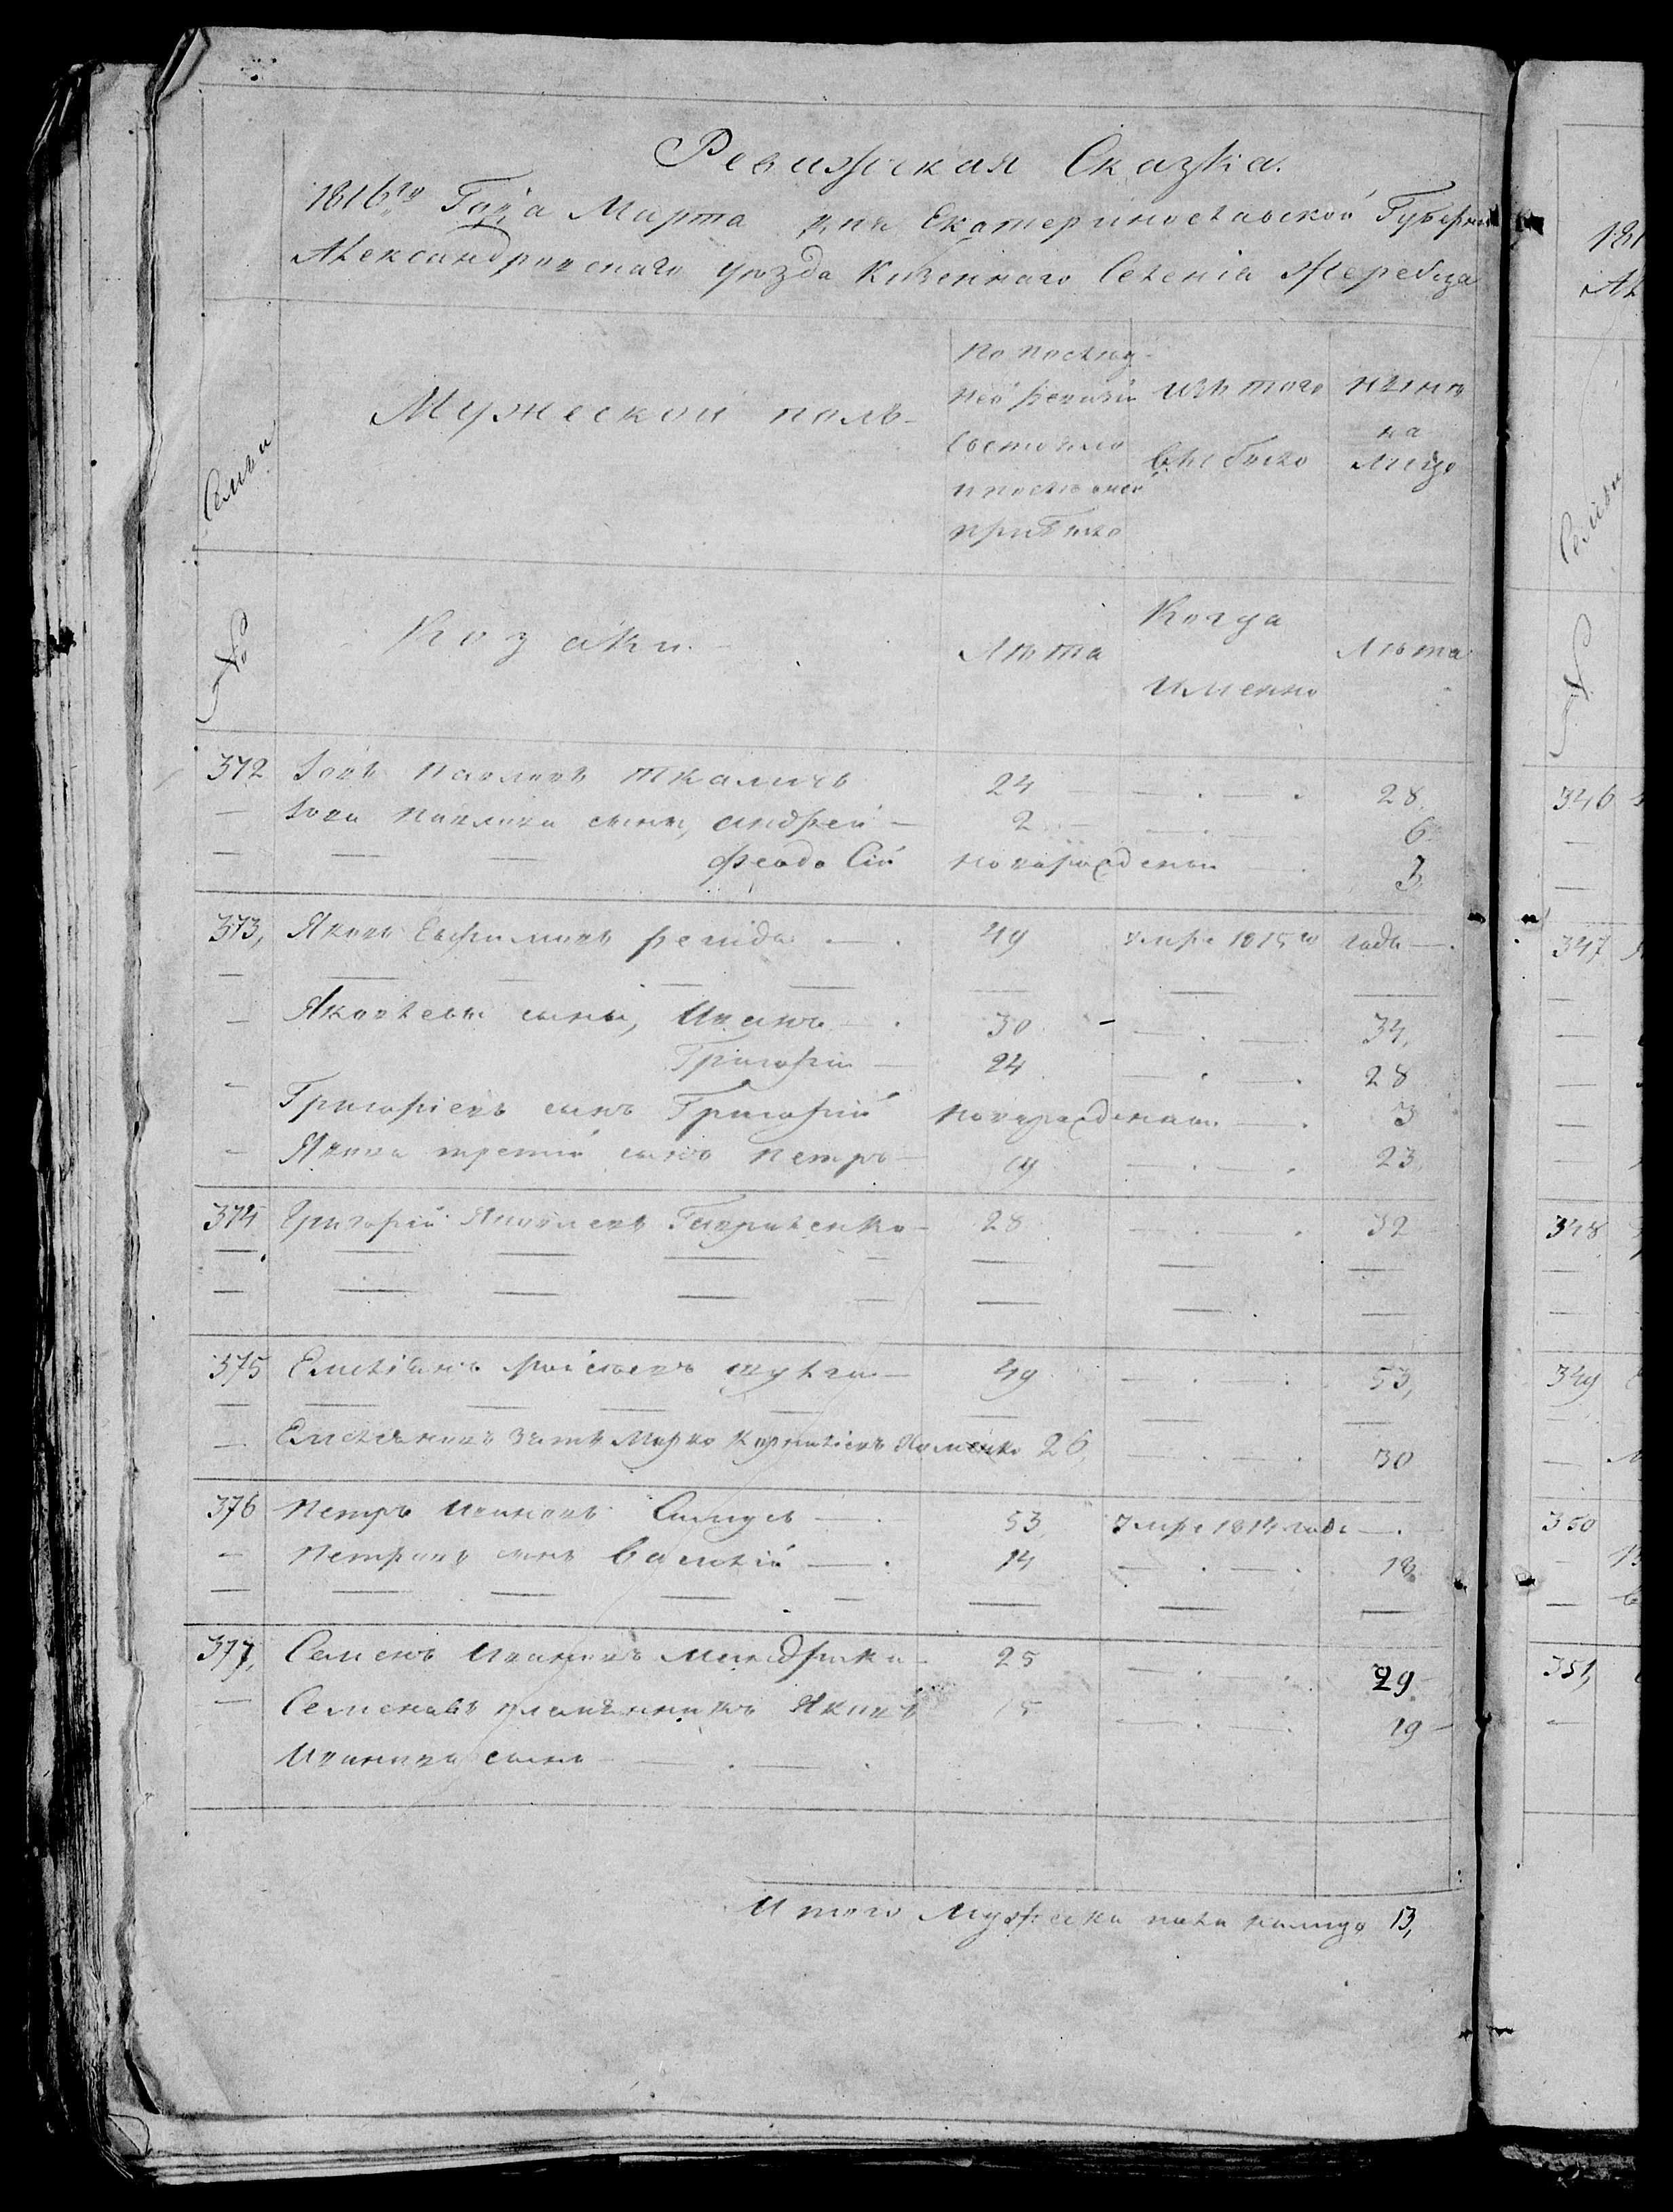 Ревижская Сказка.
1816го Года Марта дня Екатеринославской Губернии
Александровскаго уѣзда Казеннаго Селенiя Жеребца
Семьи
Мужеской полъ
По послѣд
ней ревизiи
состояло
и послѣ оной
прибыло
Изъ того
выбыло
нынѣ
на
лицо
№
Козаки.
Лѣта
Когда
именно
Лѣта
372 Iовъ Павловъ Ткаличъ 24 28.
Iова Павлова сыны, Андрей 2 6
Феодосiй новорожденъ 3
373, Яковъ Ефимовъ 49 умре 1815го года
Яковлевы сыны, Иванъ 30 34,
Григорiй 24 28
Григорiевъ сынъ Григорiй новорожденъ 3
Якова третiй сынъ Петръ 19 23
374 Григорiй Яковлевъ Гавриленко 28 32
375 Емелiянъ 49 53,
Емельяновъ зять Марко 26, 30
376 Петръ Ивановъ 53, Умре 1814 года
Петровъ сынъ Василiй 14 18.
377, Семенъ Ивановъ Мандрика 25 29
Семеновъ племянникъ Яковъ 15 19
Иванова сынъ
Итого Мужеска пола налицо 13,
181
Ал
Семьи
№
346
347
348
349
350
351,